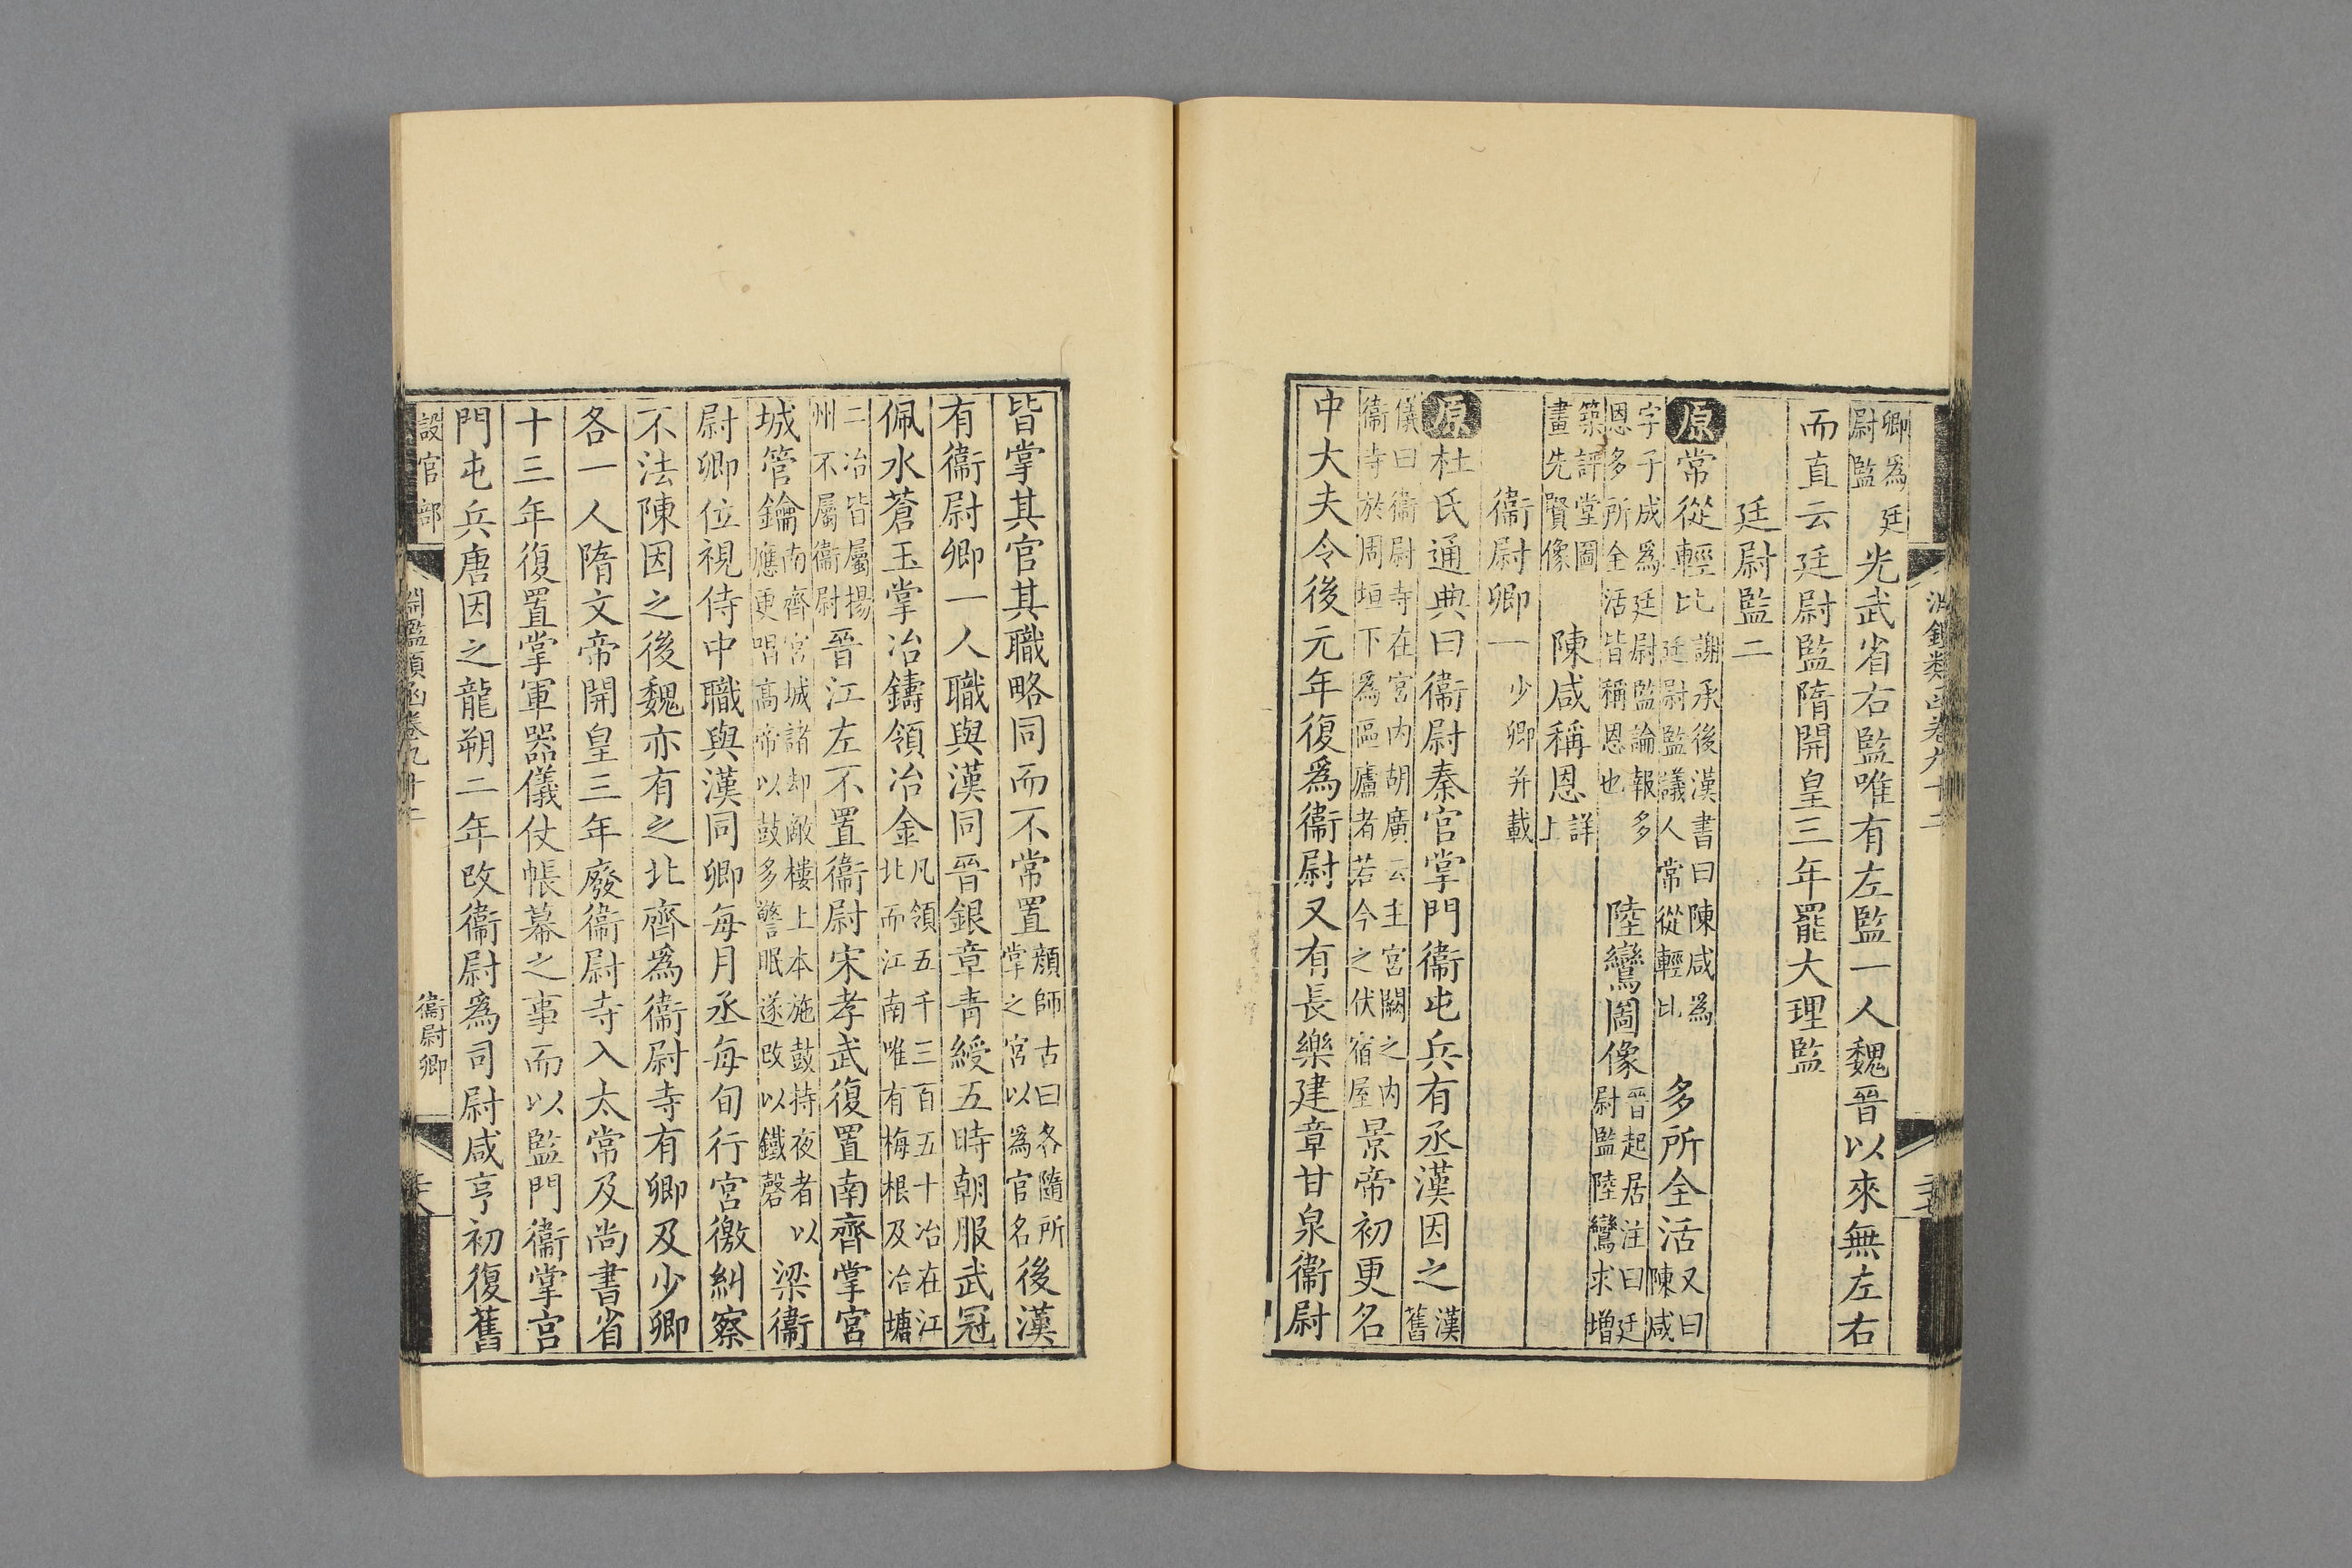 淵鑑類函卷九十二
卿爲廷尉監光武省右監唯有左監一人魏晉以來無左右
而直云廷尉監隋開皇三年罷大理監
廷尉監二
原常從輕比謝承後漢書曰陳咸爲廷尉監議人常從輕比多所全活又曰陳咸
字子成爲廷尉監論報多恩多所全活皆稱恩也陸鸞圖像晉起居注曰廷尉監陸鸞求增
築評堂圖畫先賢像陳咸稱恩詳上
衞尉卿一少卿并載
原杜氏通典曰衞尉秦官掌門衞屯兵有丞漢因之漢舊
儀曰衞尉寺在宮内胡廣云主宮闕之内衞寺於周垣下爲區廬者若今之伏宿屋景帝初更名
中大夫令後元年復爲衞尉又有長樂建章甘泉衞尉
皆掌其官其職略同而不常置顔師古曰各隨所掌之宮以爲官名後漢
有衞尉卿一人職與漢同晉銀章青綬五時朝服武冠
佩水蒼玉掌冶鑄領冶金凡領五千三百五十冶在江北而江南唯有梅根及冶塘
二冶皆屬揚州不屬衞尉晉江左不置衞尉宋孝武復置南齊掌宮
城管鑰南齊宮城諸却敵樓上本施鼓持夜者以應更唱高帝以鼓多警眠遂改以鐵磬梁衞
尉卿位視侍中職與漢同卿每月丞每旬行宮徼糾察
不法陳因之後魏亦有之北齊爲衞尉寺有卿及少卿
各一人隋文帝開皇三年廢衞尉寺入太常及尚書省
十三年復置掌軍器儀仗帳幕之事而以監門衞掌宫
門屯兵唐因之龍朔二年改衞尉爲司尉咸亨初復舊
設官部
淵鑑類函卷九十二
衞尉卿